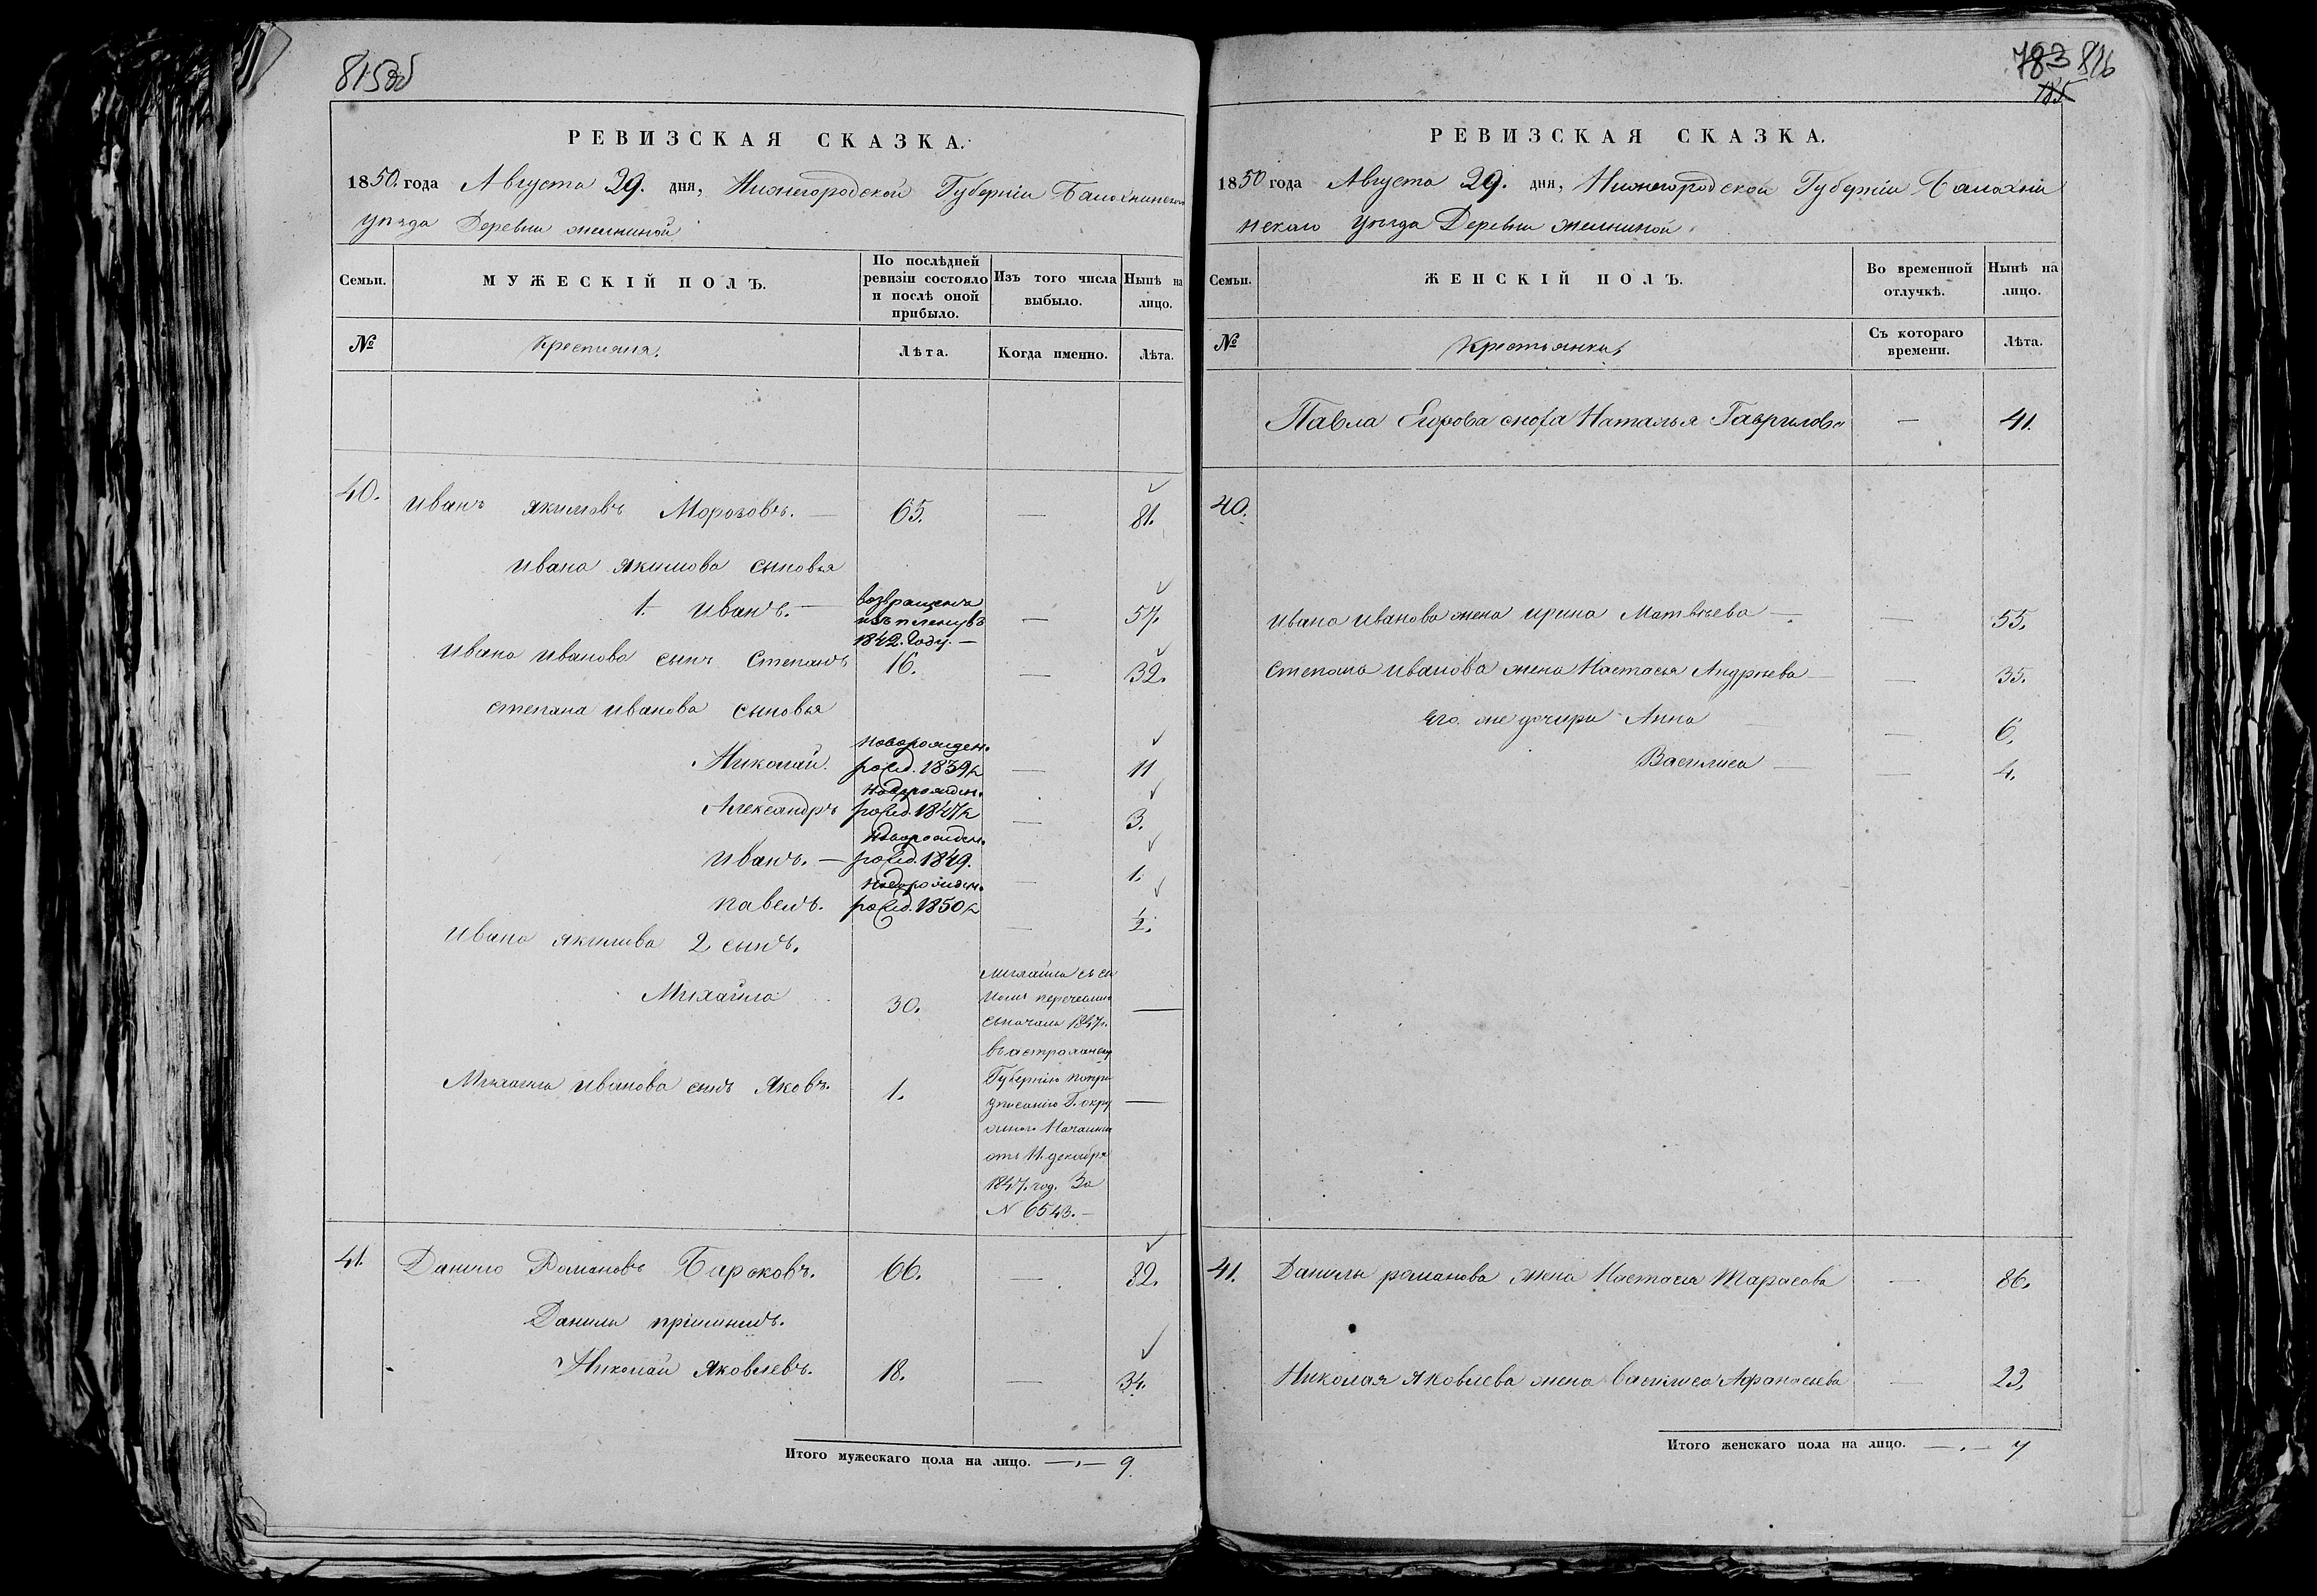 815об
РЕВИЗСКАЯ СКАЗКА.
1850. года Августа 29. дня, Нижегородской Губернiи Балахнинскаго
уѣзда Деревни желниной
Семьи.
МУЖЕСКIЙ ПОЛЪ.
По послѣдней
ревизiи состояло
и послѣ оной
прибыло.
Изъ того числа
выбыло.
Нынѣ на
лицо.
№
Крестьяня.
Лѣта.
Когда именно.
Лѣта.
40. иванъ якимовъ Морозовъ. — 65. — 81.
ивана якимова сыновья
1. иванъ. — возвращенъ — 57.
1842. Году. —
ивана иванова сынъ степанъ 16. — 32.
степана иванова сыновья
новорожден.
Николай. 1839 — 11
новорожден.
Александръ 1847 — 3.
новорожден.
иванъ. — 1849. — 1.
новорожден.
павелъ. 1850 — ½.
ивана якимова 2 сынъ.
Михайла 30. —
Михайла съ сы
номъ перечислен
сначала 1847.
въ астраханску
Губернiю по пре
дписанiю Г. окру
жного Начальни
отъ 11. декабря
1847. год. За
N 6543. —
Михаила иванова сынъ яковъ. 1. —
41. Данило Романовъ Бирюковъ. 66. — 82.
Данилы прiимышъ.
Николай яковлевъ. 18. — 34.
Итого мужескаго пола на лицо. — 9.
783 816
785
РЕВИЗСКАЯ СКАЗКА.
1850 года Августа 29. дня, Нижегородской Губернiи Балахни
нскаго уѣзда Деревни желниной
Семьи.
ЖЕНСКIЙ ПОЛЪ.
Во временной
отлучкѣ.
Нынѣ на
лицо.
№
Крестьянки
Съ котораго
времени.
Лѣта.
Павла Егорова сноха Наталья Гаврилова — 41.
40.
ивана иванова жена ирина Матвѣева — — 55.
степана иванова жена Настасья Андрѣева — — 35.
его же дочери Анна — 6.
Василиса — — 4.
41. Данилы романова жена Настасья Тарасова — 86.
Николая яковлева жена василиса Афанасьева — 22.
Итого женскаго пола на лицо. — 7